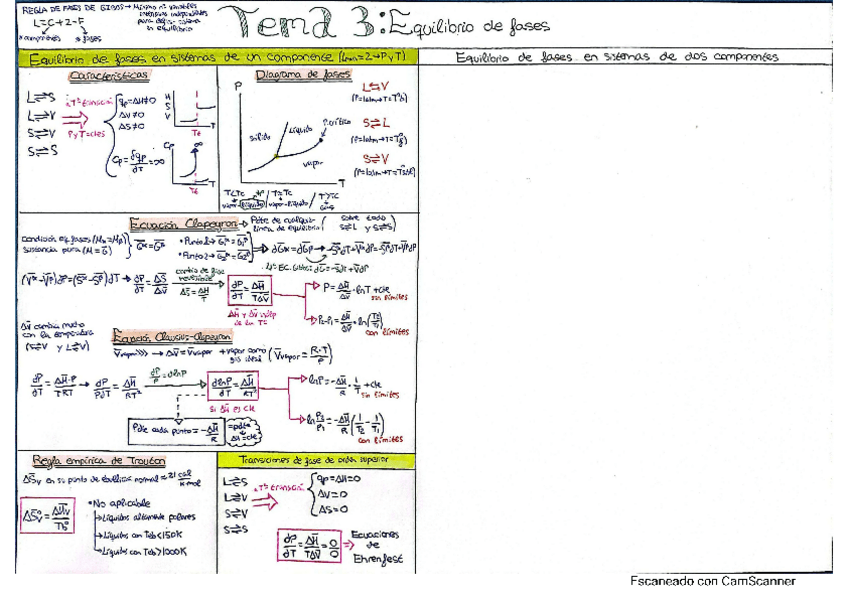 REGLA DE FASES DE GIBBS → Mínimo nº variables
intensivas independientes
para definir sistema
en equilibrio
L=C+2-F
componentes fases
Tema 3: Equilibrio de fases
Equilibrio de fases en sistemas de un componente (Lmax=2→P y T)
Equilibrio de fases en sistemas de dos componentes
Características
L⇌S
L⇌V
S⇌V
S⇌S
P y T=ctes
qp=ΔH≠0
ΔV≠0
ΔS≠0
Cp=δqp/∂T=∞
H
S
V
Te
T
Cp
∞
Te
T
Diagrama de fases
P
sólido
Líquido
P.crítico
vapor
T
L⇌V
(P=1atm→T=Tºb)
S⇌L
(P=1atm→T=Tºf)
S⇌V
T<Tc
T=Tc
T>Tc
vapor-líquido
gas
Ecuación Clapeyron → Pdte de cualquier
línea de equilibrio (sobre todo
S⇌L y S⇌S)
Condición eq fases (Mα=Mβ)
sustancia pura (M=G̅)
G̅α=G̅β
•Punto 1→G1α=G1β
•Punto 2→G2α=G2β
⇒ dG̅α=dG̅β → -S̅αdT+V̅αdP=-S̅βdT+V̅βdP
EC. Gibbs: dG̅=-S̅dT+V̅dP
(V̅α-V̅β)dP=(S̅α-S̅β)dT → dP/dT=ΔS̅/ΔV̅
cambio de fase
reversible
ΔS̅=ΔH̅/T
dP/dT=ΔH̅/TΔV̅
P=ΔH̅/ΔV̅·lnT+cte
sin límites
P2-P1=ΔH̅/ΔV̅·ln(T2/T1)
con límites
ΔV̅ cambia mucho
con la temperatura
(S⇌V y L⇌V)
Ecuación Clausius-Clapeyron
V̅vapor>>> → ΔV̅=V̅vapor
+vapor como
gas ideal (V̅vapor=R·T/P)
dP/dT=ΔH̅·P/TRT → dP/PdT=ΔH̅/RT²
dP/P=dlnP
dlnP/dT=ΔH̅/RT²
Si ΔH̅ es cte
lnP=-ΔH̅/R·1/T+cte
sin límites
ln P2/P1=-ΔH̅/R(1/T2-1/T1)
con límites
Pdte cada punto=-ΔH̅/R
=pdte
ΔH=cte
Regla empírica de Trouton
ΔS̅v en su punto de ebullición normal≈21 cal/K mol
ΔS̅ºv=ΔH̅v/Tºb
•No aplicable
→Líquidos altamente polares
→Líquidos con Teb<150K
→Líquidos con Teb>1000K
Transiciones de fase de orden superior
L⇌S
L⇌V
S⇌V
S⇌S
qp=ΔH=0
ΔV=0
ΔS=0
dP/dT=ΔH̅/TΔV̅=0/0
⇒ Ecuaciones
de
Ehrenfest
Escaneado con CamScanner